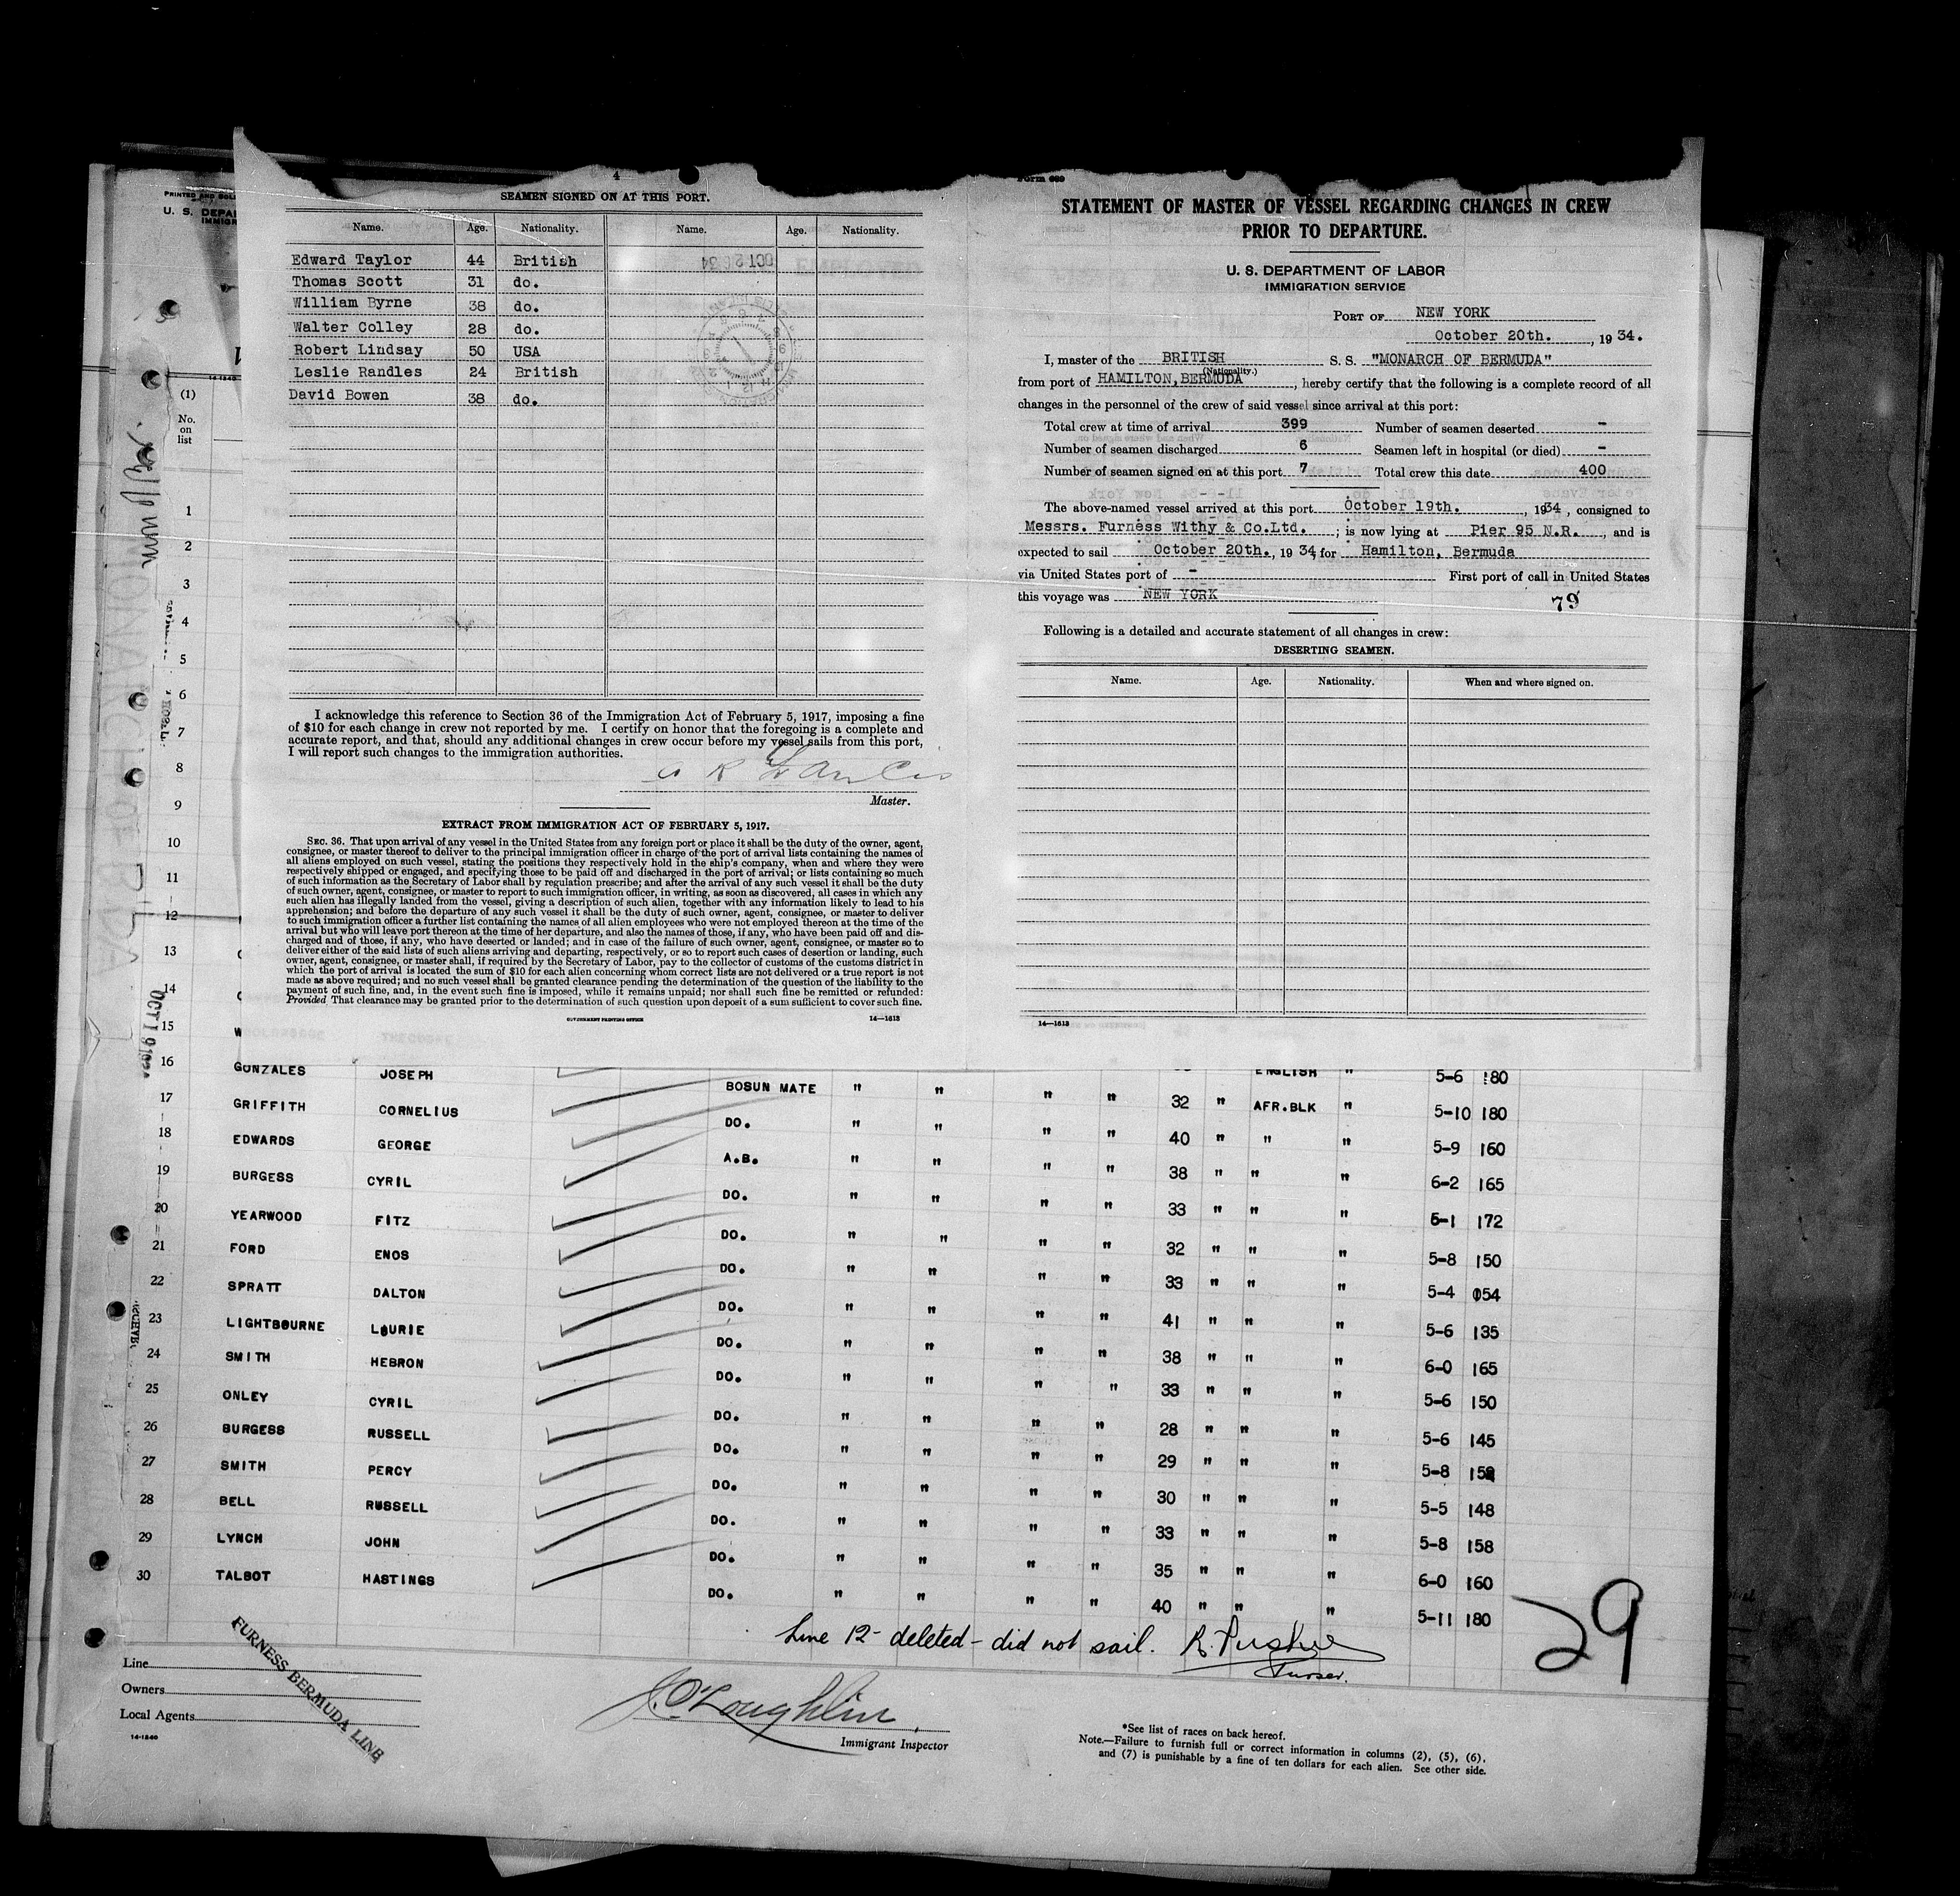 4
SEAMEN SIGNED ON AT THIS PORT.
Name. Age. Nationality. Name. Age. Nationality.
Edward Taylor 44 British
Thomas Scott 31 do.
William Byrne 38 do.
Walter Colley 28 do.
Robert Lindsay 50 USA
Leslie Randles 24 British
David Bowen 38 do.
I acknowledge this reference to Section 36 of the Immigration Act of February 5, 1917, imposing a fine
of $10 for each change in crew not reported by me. I certify on honor that the foregoing is a complete and
accurate report, and that, should any additional changes in crew occur before my vessel sails from this port,
I will report such changes to the immigration authorities.
Master.
EXTRACT FROM IMMIGRATION ACT OF FEBRUARY 5, 1917.
SEC. 36. That upon arrival of any vessel in the United States from any foreign port or place it shall be the duty of the owner, agent,
consignee, or master thereof to deliver to the principal immigration officer in charge of the port of arrival lists containing the names of
all aliens employed on such vessel, stating the positions they respectively hold in the ship's company, when and where they were
respectively shipped or engaged, and specifying those to be paid off and discharged in the port of arrival; or lists containing so much
of such information as the Secretary of Labor shall by regulation prescribe; and after the arrival of any such vessel it shall be the duty
of such owner, agent, consignee, or master to report to such immigration officer, in writing, as soon as discovered, all cases in which any
such alien has illegally landed from the vessel, giving a description of such alien, together with any information likely to lead to his
apprehension; and before the departure of any such vessel it shall be the duty of such owner, agent, consignee, or master to deliver
to such immigration officer a further list containing the names of all alien employees who were not employed thereon at the time of the
arrival but who will leave port thereon at the time of her departure, and also the names of those, if any, who have been paid off and dis-
charged and of those, if any, who have deserted or landed; and in case of the failure of such owner, agent, consignee, or master so to
deliver either of the said lists of such aliens arriving and departing, respectively, or so to report such cases of desertion or landing, such
owner, agent, consignee, or master shall, if required by the Secretary of Labor, pay to the collector of customs of the customs district in
which the port of arrival is located the sum of $10 for each alien concerning whom correct lists are not delivered or a true report is not
made as above required; and no such vessel shall be granted clearance pending the determination of the question of the liability to the
payment of such fine, and, in the event such fine is imposed, while it remains unpaid; nor shall such fine be remitted or refunded:
Provided That clearance may be granted prior to the determination of such question upon deposit of a sum sufficient to cover such fine.
GOVERNMENT PRINTING OFFICE 14—1613
Form 689
STATEMENT OF MASTER OF VESSEL REGARDING CHANGES IN CREW
PRIOR TO DEPARTURE.
U. S. DEPARTMENT OF LABOR
IMMIGRATION SERVICE
PORT OF NEW YORK
October 20th., 1934.
I, master of the BRITISH S. S. "MONARCH OF BERMUDA"
(Nationality.)
from port of HAMILTON, BERMUDA, hereby certify that the following is a complete record of all
changes in the personnel of the crew of said vessel since arrival at this port:
Total crew at time of arrival 399 Number of seamen deserted -
Number of seamen discharged 6 Seamen left in hospital (or died) -
Number of seamen signed on at this port 7 Total crew this date 400
The above-named vessel arrived at this port October 19th., 1934, consigned to
Messrs. Furness Withy & Co.Ltd. ; is now lying at Pier 95 N.R., and is
expected to sail October 20th., 1934 for Hamilton, Bermuda
via United States port of - First port of call in United States
this voyage was NEW YORK
79
Following is a detailed and accurate statement of all changes in crew:
DESERTING SEAMEN.
Name. Age. Nationality. When and where signed on.
14—1613
(1)
No.
on
list
1
2
3
4
5
6
7
8
9
10
11
12
13
14
15 W
16 GONZALES JOSEPH BOSUN MATE " " " " ENGLISH " 5-6 180
17 GRIFFITH CORNELIUS DO. " " " " 32 " AFR.BLK " 5-10 180
18 EDWARDS GEORGE A.B. " " " " 40 " " " 5-9 160
19 BURGESS CYRIL DO. " " " " 38 " " " 6-2 165
20 YEARWOOD FITZ DO. " " " " 33 " " " 5-1 172
21 FORD ENOS DO. " " " " 32 " " " 5-8 150
22 SPRATT DALTON DO. " " " " 33 " " " 5-4 054
23 LIGHTBOURNE LOURIE DO. " " " " 41 " " " 5-6 135
24 SMITH HEBRON DO. " " " " 38 " " " 6-0 165
25 ONLEY CYRIL DO. " " " " 33 " " " 5-6 150
26 BURGESS RUSSELL DO. " " " " 28 " " " 5-6 145
27 SMITH PERCY DO. " " " " 29 " " " 5-8 152
28 BELL RUSSELL DO. " " " " 30 " " " 5-5 148
29 LYNCH JOHN DO. " " " " 33 " " " 5-8 158
30 TALBOT HASTINGS DO. " " " " 35 " " " 6-0 160
40 " " " 5-11 180
Line 12 - deleted - did not sail.
Purser.
29
Line
Owners
Local Agents
FURNESS BERMUDA LINE
14-1240
J. O'Loughlin
Immigrant Inspector
*See list of races on back hereof.
Note.—Failure to furnish full or correct information in columns (2), (5), (6),
and (7) is punishable by a fine of ten dollars for each alien. See other side.